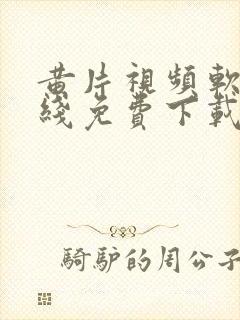 黃片視頻軟
綫免費下載
騎驢的周公子